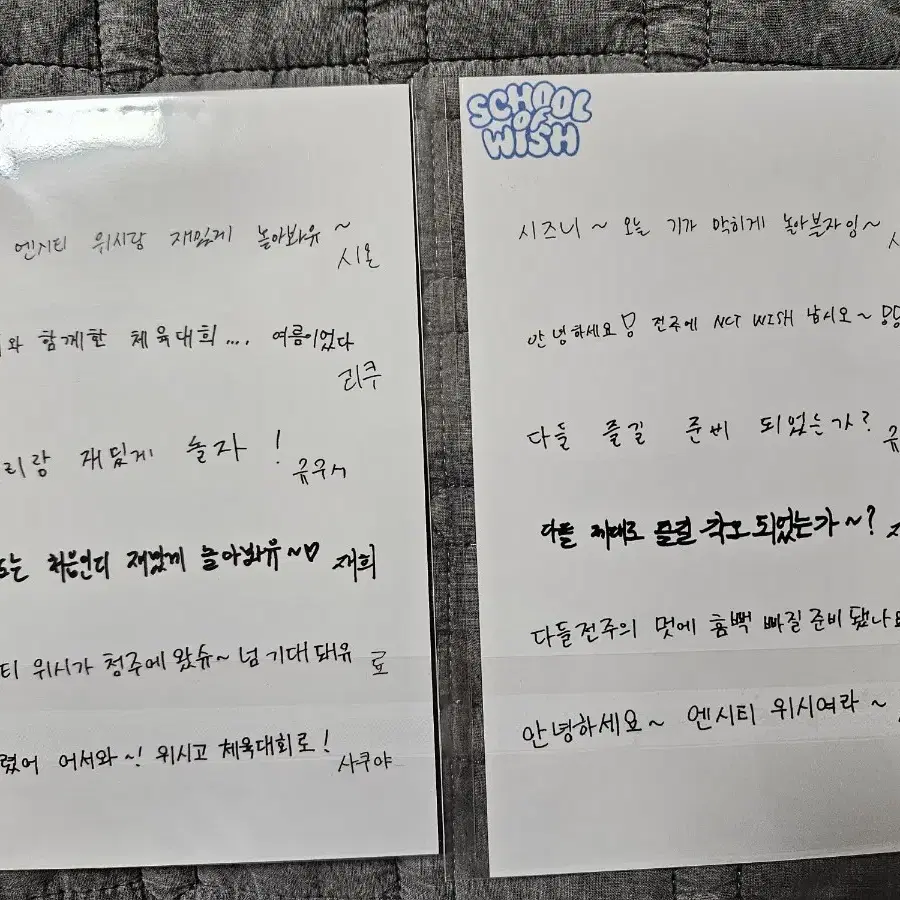 엔시티 위시랑 재밌게 놀아봐유~
시온
와 함께한 체육대회.... 여름이었다
리쿠
리랑 재밌게 놀자!
유우시
는 처음인디 재밌게 놀아봐유~♡ 재희
티 위시가 청주에 왔슈~ 넘 기대돼유 료
렸어 어서와~! 위시고 체육대회로!
사쿠야
SCHOOL
OF
WISH
시즈니~ 오늘 기가 막히게 놀아블자잉~
안녕하세요 전주에 NCT WISH 납시오~
다들 즐길 준비 되었는가?
다들 제대로 즐길 각오 되었는가~?
다들 전주의 멋에 흠뻑 빠질 준비 됐나요
안녕하세요~ 엔시티 위시여라~